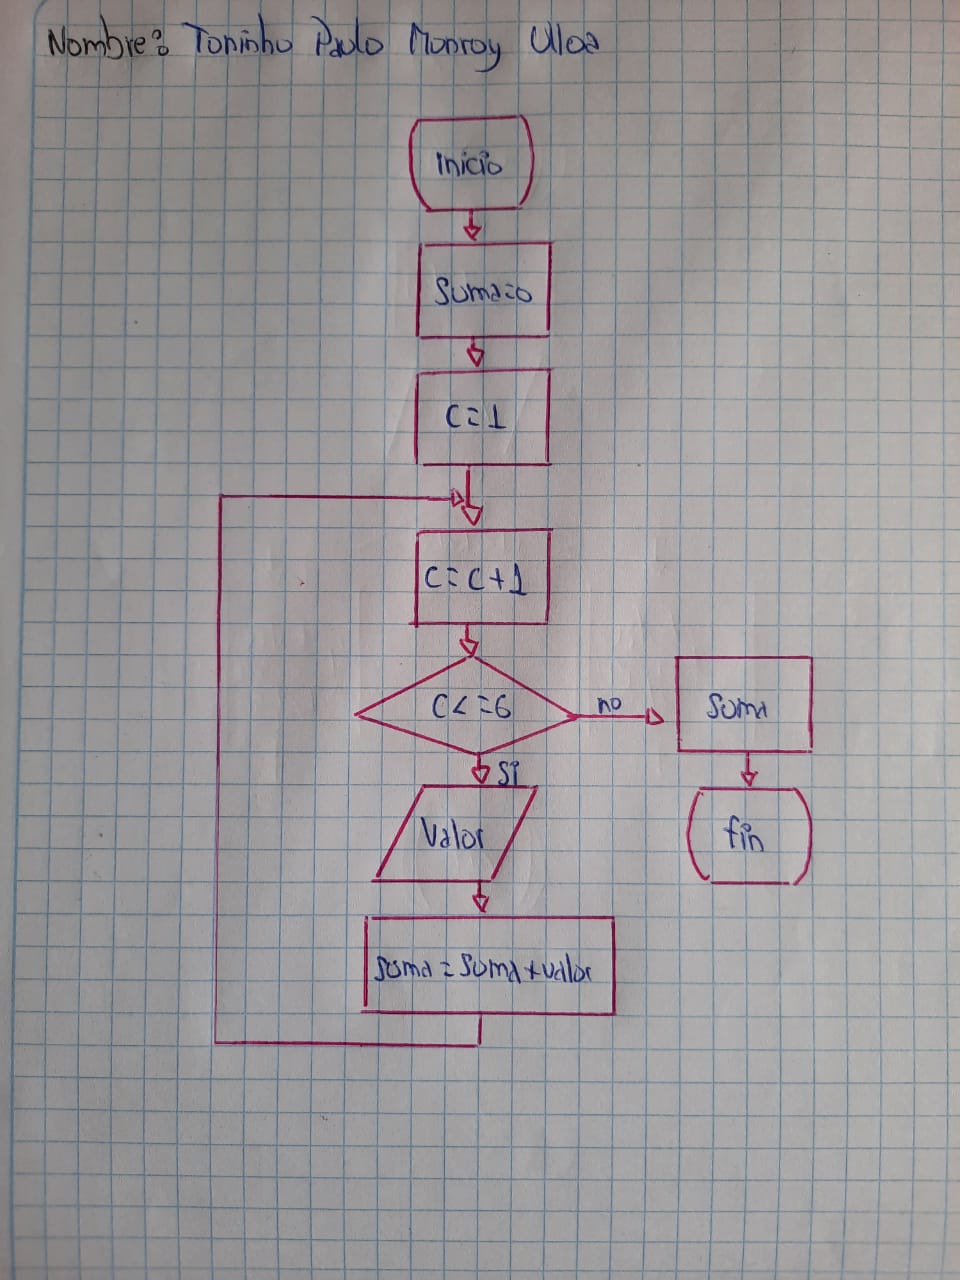 Nombre: Toninho Paulo Monroy Uloa
Inicio
Suma=0
C=1
C=C+1
C<=6
no
Suma
Si
Valor
fin
Suma=Suma+valor